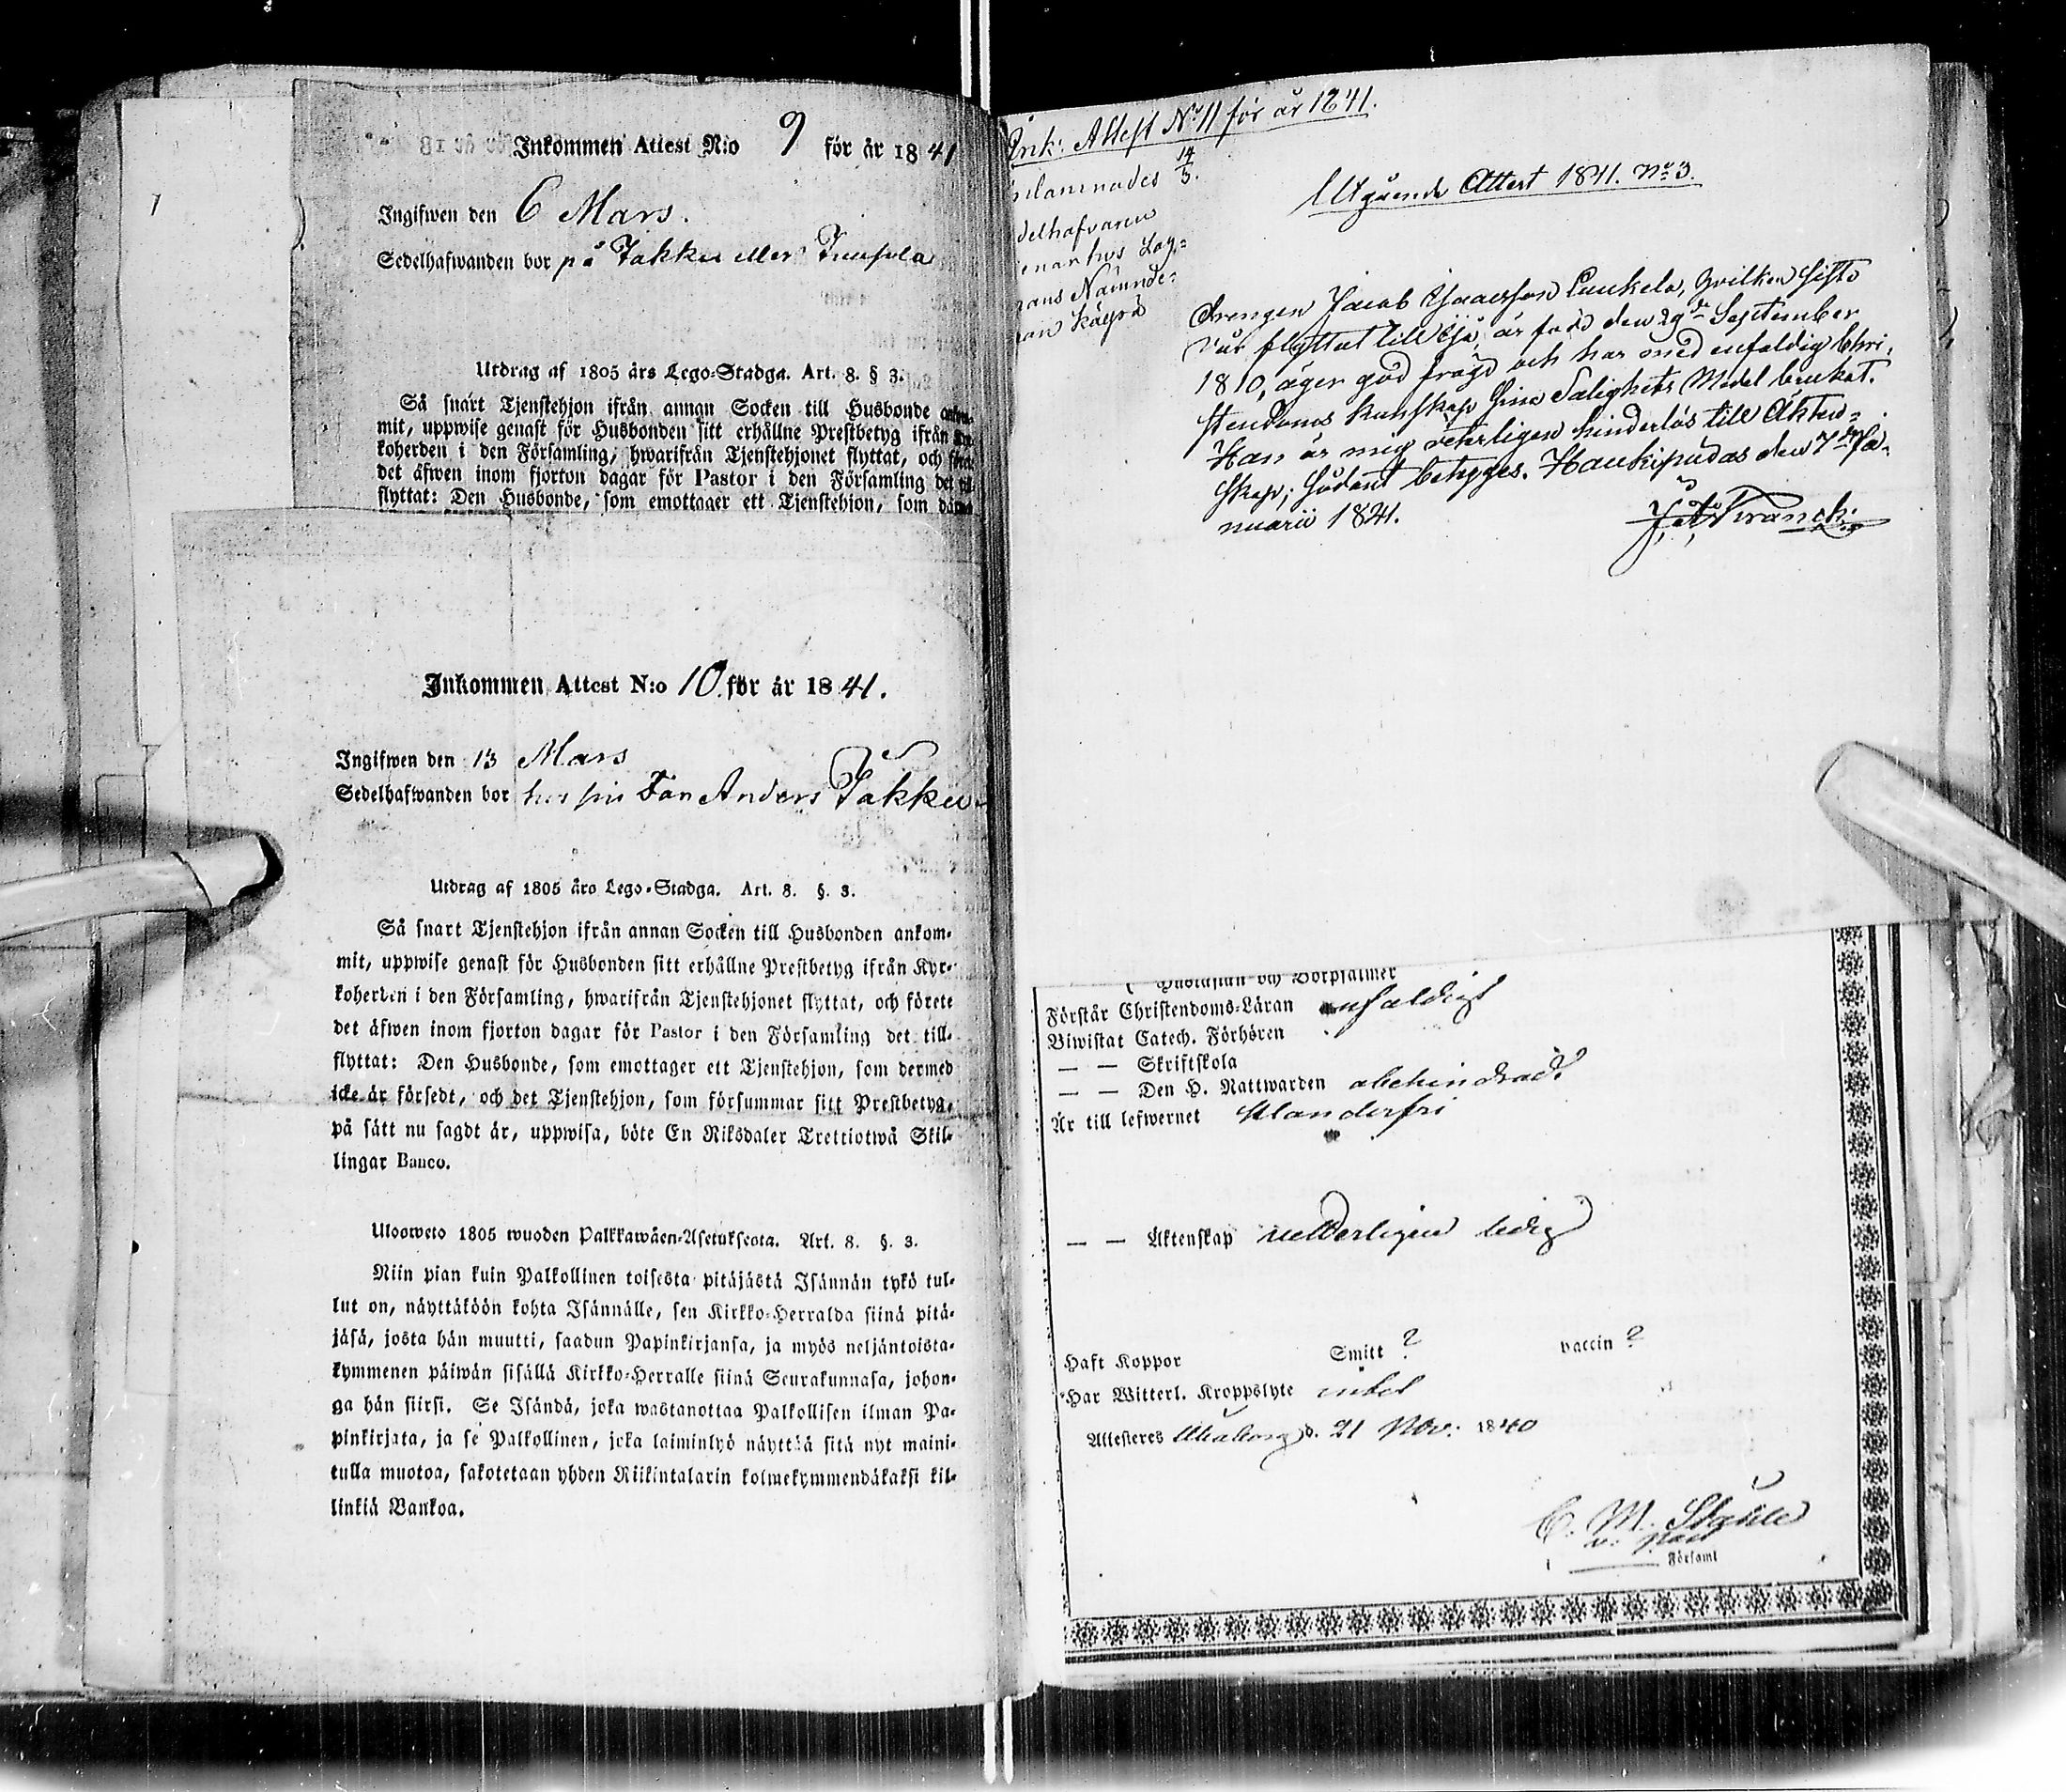 Inkommen Attest N:o 9 för år 1841
Ingifwen den 6 Mars.
Sedelhafwanden bor på Jakku eller
Utdrag af 1805 års Lego-Stadga. Art. 8. § 3.
Så snart Tjenstehjon ifrån annan Socken till Husbonde
mit, uppwise genast för Husbonden sitt erhållne Prestbetyg ifrån
koherden i den Församling, hwarifrån Tjenstehjonet flyttat, och
det äfwen inom fjorton dagar för Pastor i den Församling det
flyttat: Den Husbonde, som emottager ett Tjenstehjon, som
Inkommen Attest N:o 10. för år 1841.
Ingifwen den 13 Mars
Sedelhafwanden bor hos sin Far Anders Jakku
Utdrag af 1805 års Lego-Stadga. Art. 8. §. 3.
Så snart Tjenstehjon ifrån annan Socken till Husbonden ankom-
mit, uppwise genast för Husbonden sitt erhållne Prestbetyg ifrån Kyr-
koherden i den Församling, hwarifrån Tjenstehjonet flyttat, och förete
det äfwen inom fjorton dagar för Pastor i den Församling det till-
flyttat: Den Husbonde, som emottager ett Tjenstehjon, som dermed
icke är försedt, och det Tjenstehjon, som försummar sitt Prestbetyg,
på sätt nu sagdt är, uppwisa, böte En Riksdaler Trettiotwå Skil-
lingar Banco.
Uloosweto 1805 wuoden Palkkawäen-Asetuksesta. Art. 8. §. 3.
Niin pian kuin Palkollinen toisesta pitäjästä Isännän tykö tul-
lut on, näyttäköön kohta Isännälle, sen Kirkko-Herralda siinä pitä-
jäsä, josta hän muutti, saadun Papinkirjansa, ja myös neljäntoista-
kymmenen päiwän sisällä Kirkko-Herralle siinä Seurakunnasa, johon-
ga hän siirsi. Se Isändä, joka wastanottaa Palkollisen ilman Pa-
pinkirjata, ja se Palkollinen, joka laiminlyö näyttää sitä nyt maini-
tulla muotoa, sakotetaan yhden Riikintalarin kolmekymmendäkaksi kil-
linkiä Bankoa.
Ink: Attest No 11 för år 1841.
14/3.
delhafvaren
hos Lag-
Nämnde-
Utgående Attest 1841. No 3.
Drengen Jacob Isaacsson Luukela, hvilken sistl.
år flyttat till Ijo, är född den 29de September
1810, äger god frägd och har med enfaldig Chri-
stendoms kunskap sina Salighets Medel brukat.
Han är mig veterligen hinderlös till Äkten-
skap; sådant betyges. Haukipudas den 7de Ja-
nuarii 1841.
Franck.
Förstår Christendoms-Läran enfaldigt
Biwistat Catech. Förhören
— — Skriftskola
— — Den H. Nattwarden obehindrad
Är till lefwernet klanderfri
— — Äktenskap vetterligen ledig
Haft Koppor Smitt ? vaccin ?
Har Witterl. Kroppslyte intet
Attesteres Uleåborg d. 21 Nov: 1840
C. M. Ståhle
v. Past
i Församl